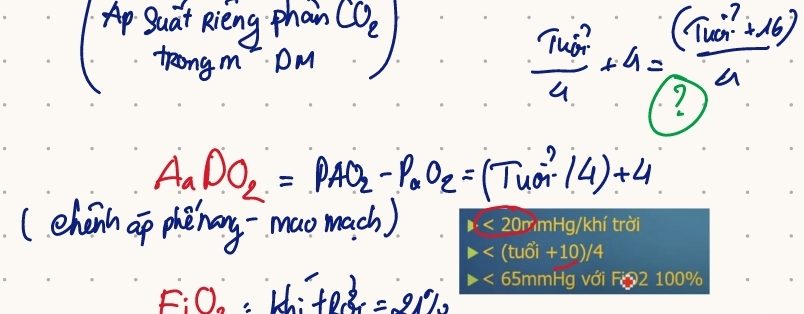 (Áp Suất Riêng phần CO2
trong m DM)
Tuổi/4 + 4 = (Tuổi + 16)/4
?
AaDO2 = PAO2 - PaO2 = (Tuổi/4)+4
(chênh áp phế nang - mao mạch)
< 20mmHg/khí trời
< (tuổi +10)/4
< 65mmHg với FiO2 100%
FiO2 : khí trời = 21%